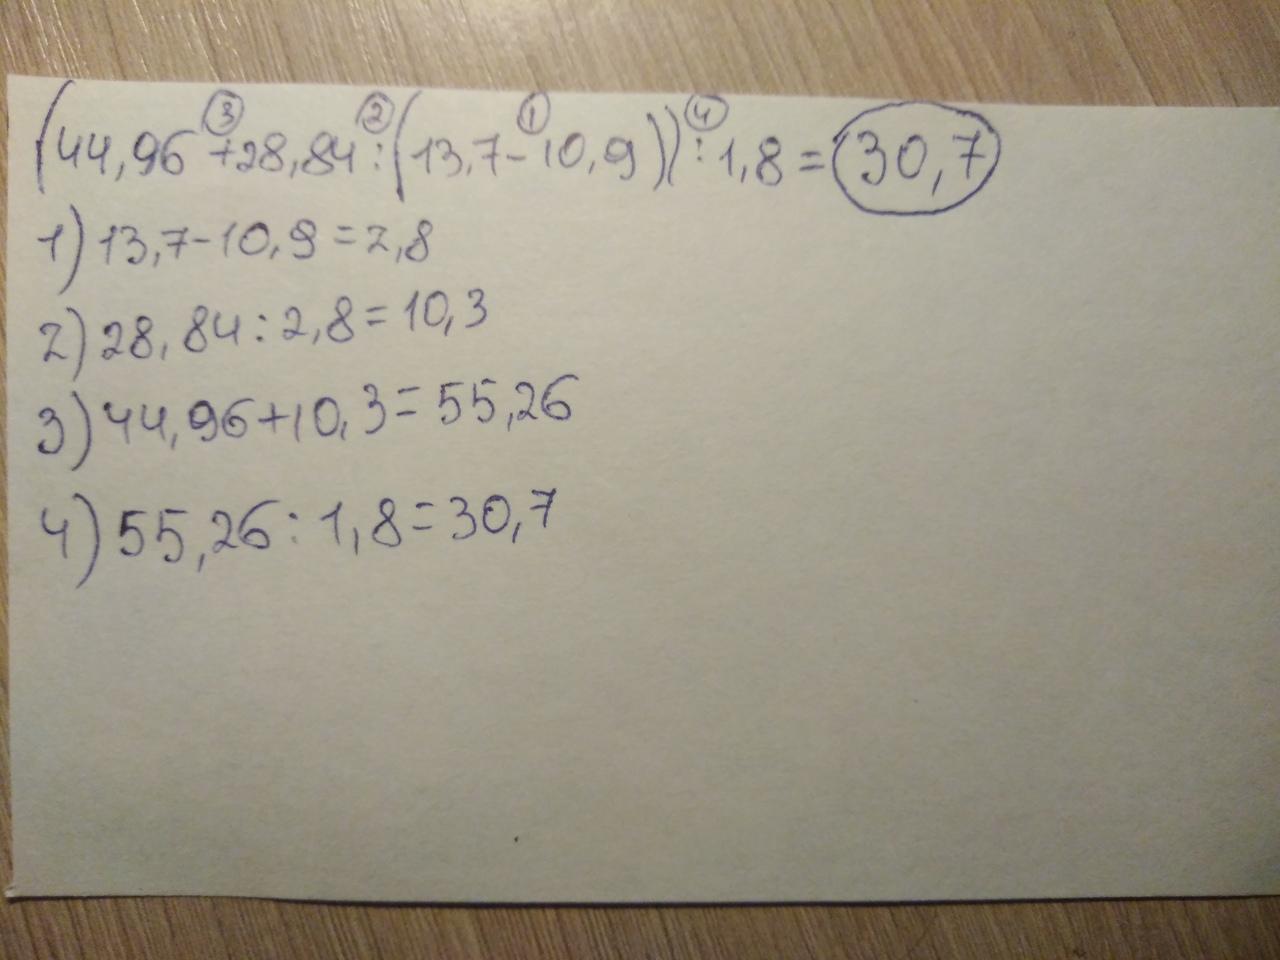 (44,96 + 28,84 : (13,7 - 10,9)) : 1,8 = 30,7
1) 13,7 - 10,9 = 2,8
2) 28,84 : 2,8 = 10,3
3) 44,96 + 10,3 = 55,26
4) 55,26 : 1,8 = 30,7